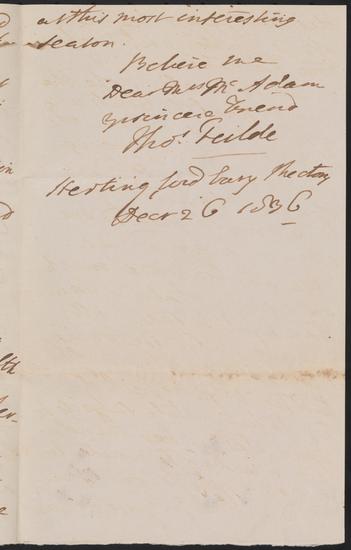 at this most interesting
season.
Believe me
Dear Mrs Mc Adam
yr sincere Friend
Thos. Feilde
Hertingfordbury Rectory
Decr 26 1836